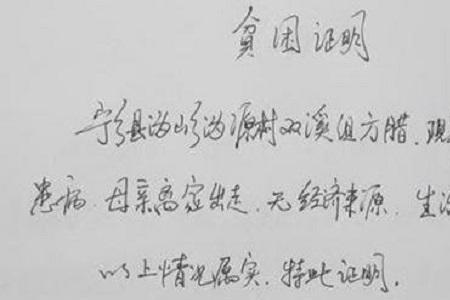 贫困证明
宁乡县沩山乡沩源村双溪组方腊.现
患病.母亲离家出走.无经济来源.生活
以上情况属实.特此证明.